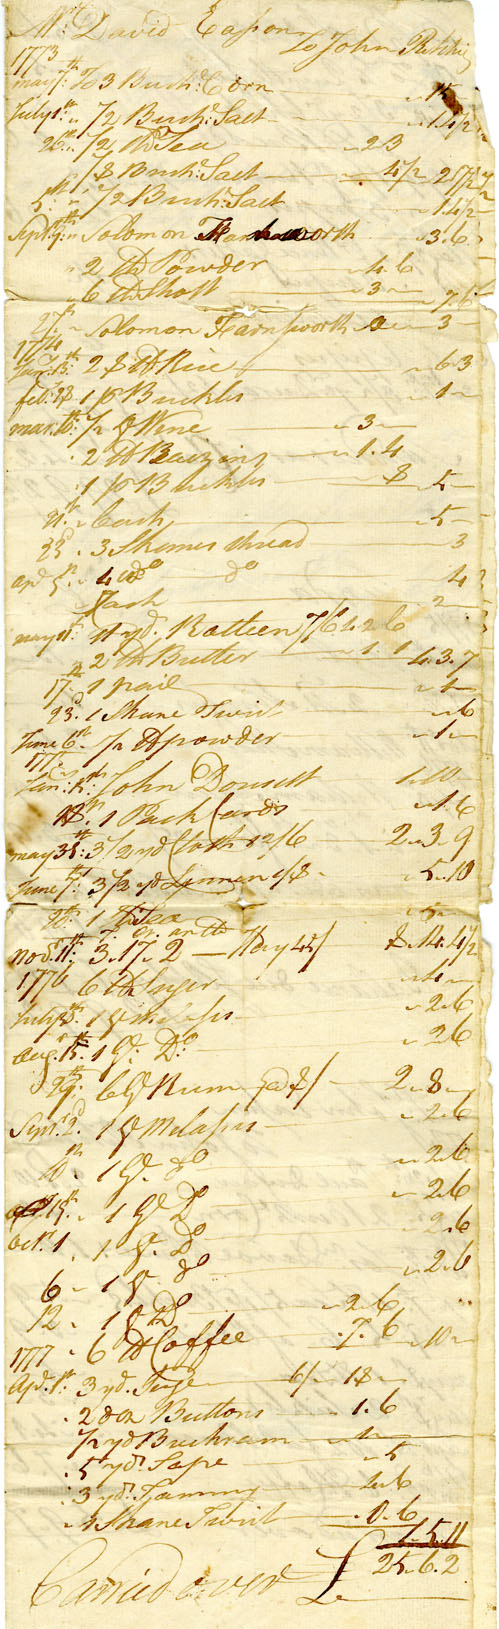 Mr David Eason
To John Ritchie
1773
may 7th To 3 Bush:d Corn
July 1st " 1/2 Bush:d Salt 1.4 1/2
26th " 1/2 lb Tea 2 3
" 1 & Bush:d Salt 4/2
5th " 1/2 Bush:d Salt 1.4 1/2
Sept 9th " Solomon Farnsworth 3.6
" 2 lb Powder 4.6
" 6 lb Shott 3 7.6
27th " Solomon Farnsworth 3
1774
Jany 13th 28 lb Rice 6 3
feb. 28 1 pr Buckles 1
mar. 16th 1/2 g Wine 3
" 2 lb Raizins 1.4
" 1 pr Buckles 8 5
21st " Cash 5
23d " 3 Skennes thread 3
apr 5th " 4 do do 4
Cash 2
may 11th 11 yd. Ratteen 7/6 4.2 6
" 2 lb Butter 1 1 4.3.7
17th 1 pail
23d. 1 Skane Twist 6
June 6th 1/2 lb powder 1
Jan: John Dousett 1.10
18th 1 Pack Cards 1.6
may 31st: 3 1/2 yd Cloth 12/6 2.3.9
June 7th: 3 1/2 yd Linnen @/8 5.10
1 lb Tea 5
Nov. 11th 3.17.2 Hay 45/ 8.14.4 1/2
1776 6 lb Suger 4
July 1 g melasses 2.6
Aug. 15th. 1 G: Do 2 6
29th. 6 G Rum @ 8/ 2.8
Sept. 2d. 1 g Melasses 2.6
10th. 1 G. do 2.6
15th. 1 G Do 2.6
Oct. 1 1 G. Do 2.6
6 1 g. do 2.6
12 1 g Do 2.6
1777 6 lb Coffee 7.6 10
Apl. 1st. 3 yd. Serge 6/ 18
2 doz Buttons 1.6
1/2 yd Buckram 1
5 yd. Tape 5
3 yd. Tammy 6
Skane Twist 0.6
1.5.11
Carried over £ 25.6.2